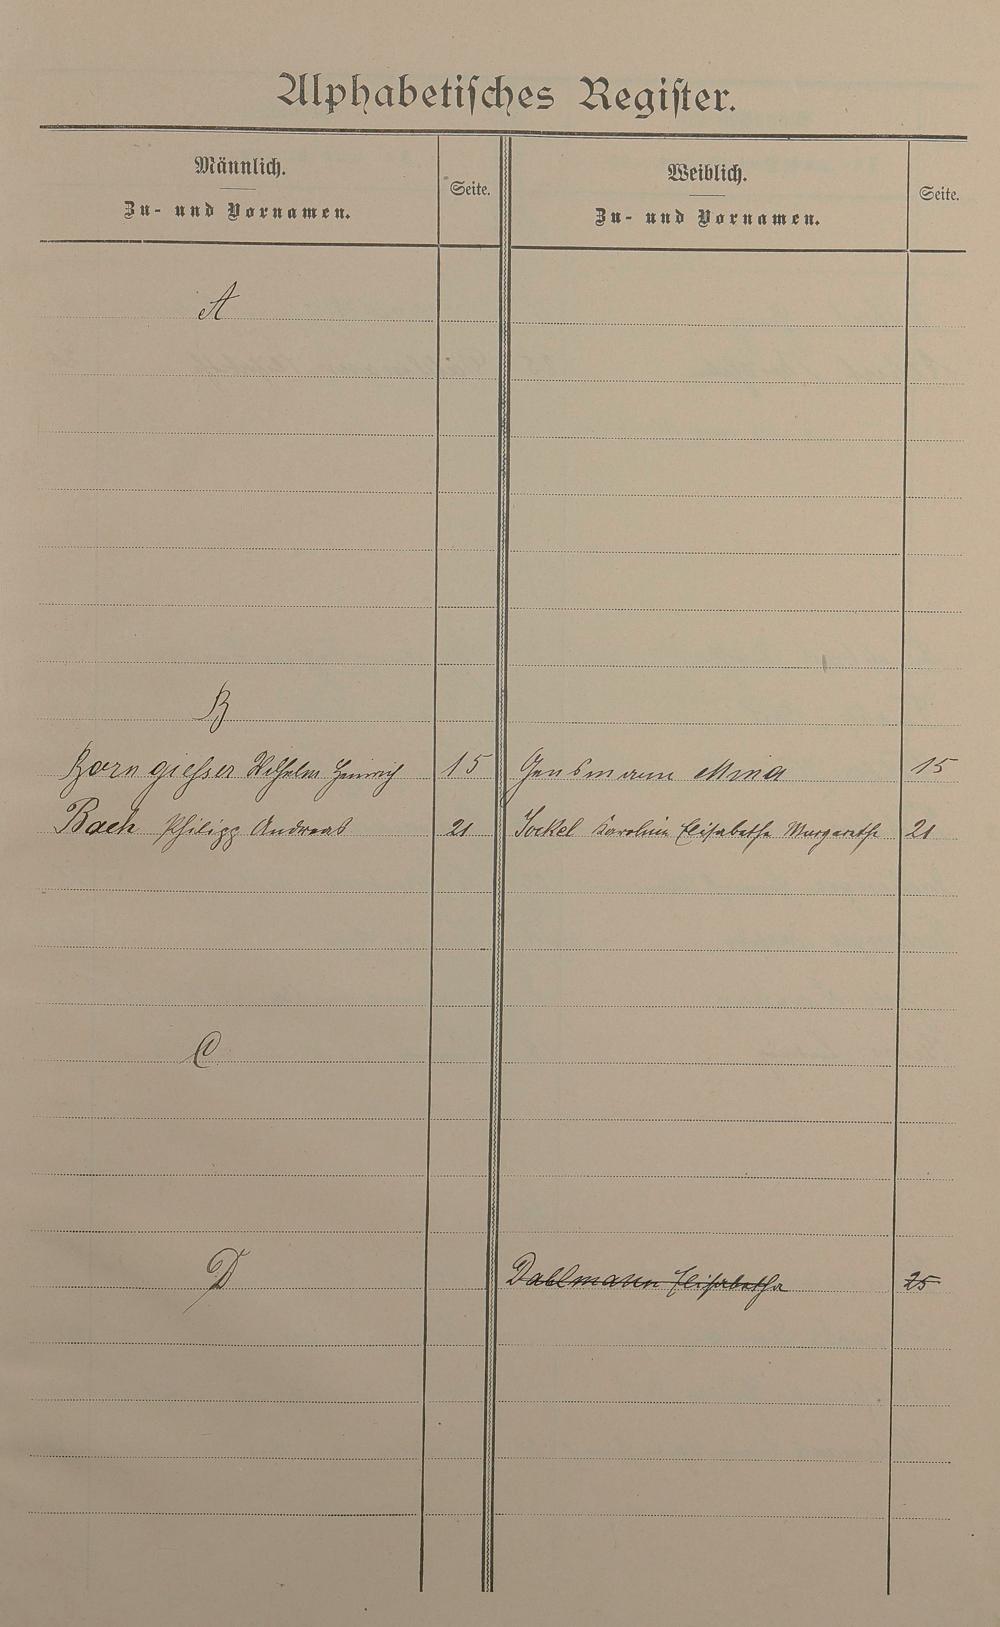 Alphabetisches Register.
Männlich.
Zu- und Vornamen.
Seite.
Weiblich.
Zu- und Vornamen.
Seite.
A
B
Borngiesser Wilhelm Heinrich 15 Gensmann Mina 15
Bach Philipp Andreas 21 Jockel Karoline Elisabethe Margarethe 21
C
D Dahlmann Elisabetha 25